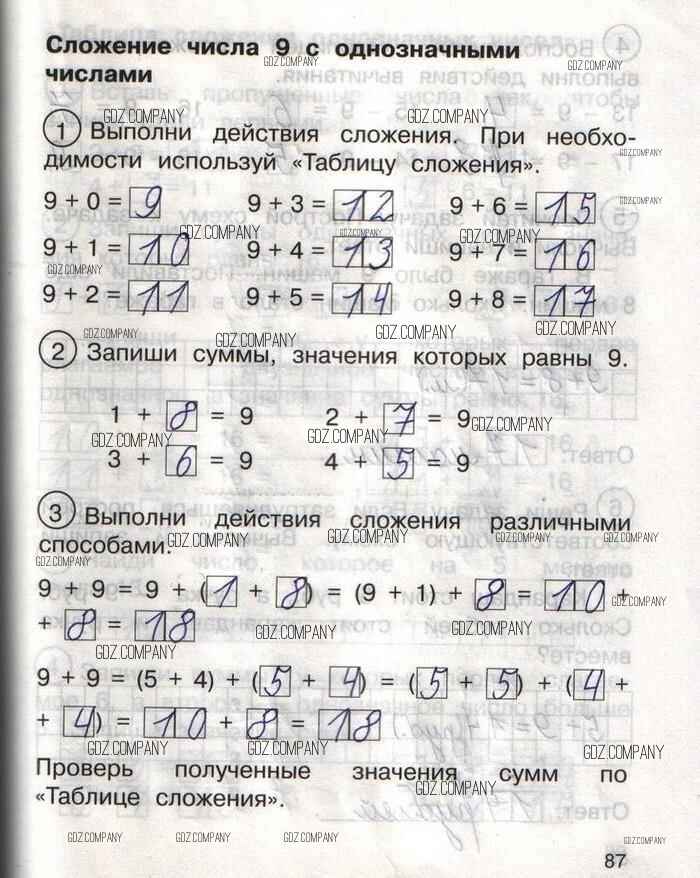 Сложение числа 9 с однозначными
числами
1 Выполни действия сложения. При необхо-
димости используй «Таблицу сложения».
9 + 0 = 9 9 + 3 = 12 9 + 6 = 15
9 + 1 = 10 9 + 4 = 13 9 + 7 = 16
9 + 2 = 11 9 + 5 = 14 9 + 8 = 17
2 Запиши суммы, значения которых равны 9.
1 + 8 = 9 2 + 7 = 9
3 + 6 = 9 4 + 5 = 9
3 Выполни действия сложения различными
способами:
9 + 9 = 9 + (1 + 8) = (9 + 1) + 8 = 10 +
+ 8 = 18
9 + 9 = (5 + 4) + (5 + 4) = (5 + 5) + (4 +
+ 4) = 10 + 8 = 18
Проверь полученные значения сумм по
«Таблице сложения».
GDZ.COMPANY
87